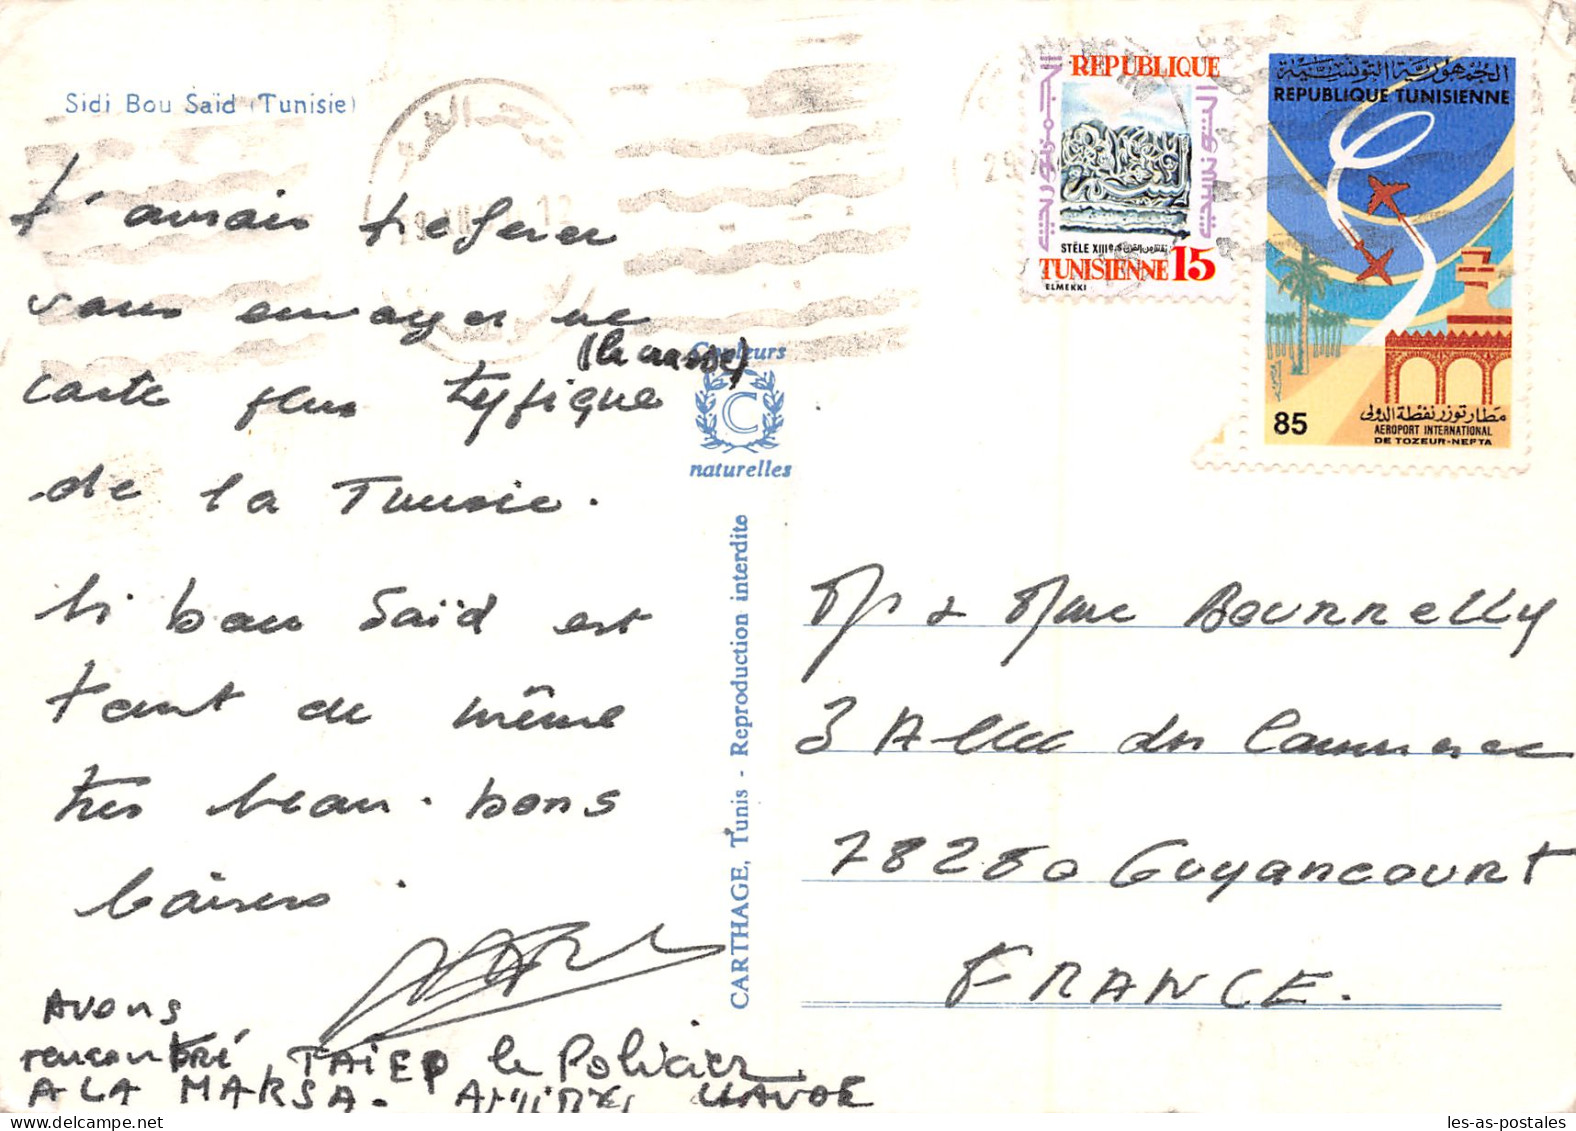 Sidi Bou Saïd (Tunisie)
J'aurais préférer
vous envoyer une
(la crasse)
carte plus typique
de la Tunisie.
Si bou Saïd est
tout de même
très beau. bons
baisers.
Avons
rencontré TAIEP le Policier
A LA MARSA.
Couleurs
C
naturelles
CARTHAGE, Tunis - Reproduction interdite
REPUBLIQUE
الجمهورية التونسية
STÈLE XIIIe S.
TUNISIENNE 15
ELMEKKI
الجمهورية التونسية
REPUBLIQUE TUNISIENNE
85
مطار توزر نفطة الدولي
AEROPORT INTERNATIONAL
DE TOZEUR-NEFTA
Mr & Mme Bournelly
3 Allée du Commerce
78280 Guyancourt
FRANCE.
les-as-postales